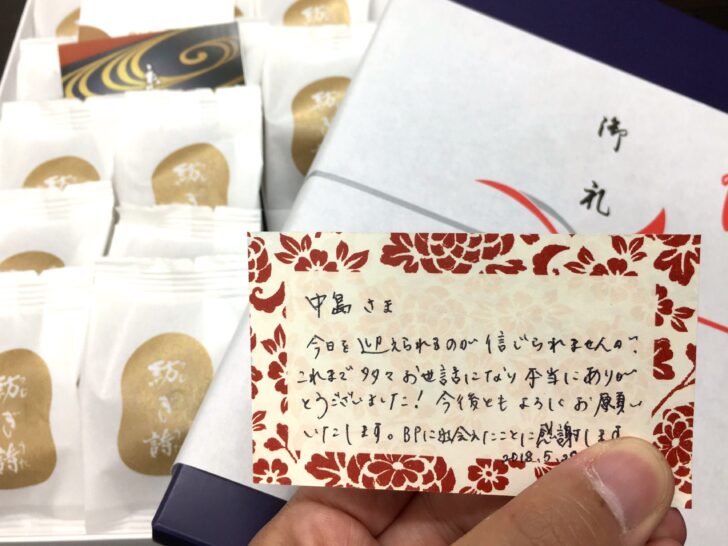 紡
紡ぎ
紡ぎ詩
紡ぎ詩
御礼
中島さま
今日を迎えられるのが信じられませんが、
これまで多々お世話になり本当にありが
とうございました！今後ともよろしくお願い
いたします。BPに出会えたことに感謝します
2018.5.29